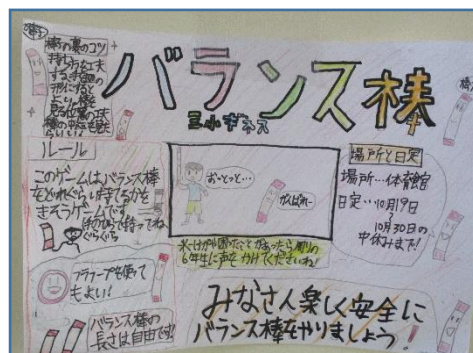 バランス棒
三小ギネス
ルール
このゲームはバランス棒
をどれぐらい持てるかを
きそうゲームです
手のひらで持ってね
ぐらぐら
フラフープを使って
もよい!
バランス棒の
長さは自由です!
おっとっと…
がんばれー
6年生に声をかけてくださいね!
場所と日定
場所…体育館
日定…10月19日
〜
10月30日の
中休みまで!
みなさん楽しく安全に
バランス棒をやりましょう!